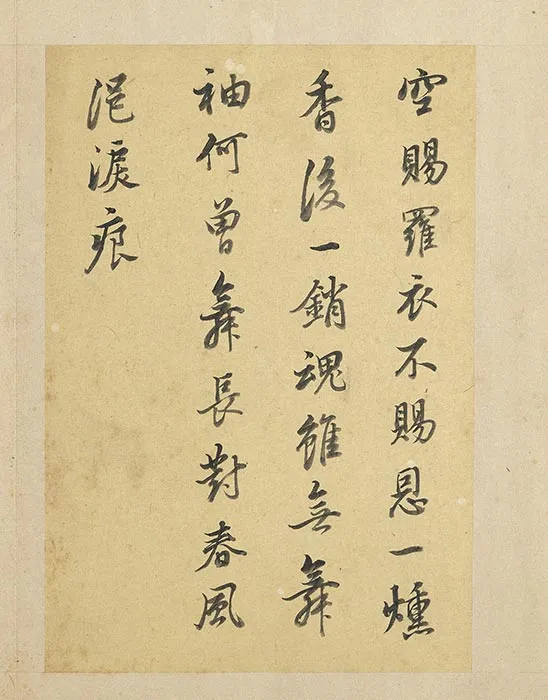 空賜羅衣不賜恩一燻
香後一銷魂雖無舞
袖何曾舞長對春風
浥淚痕